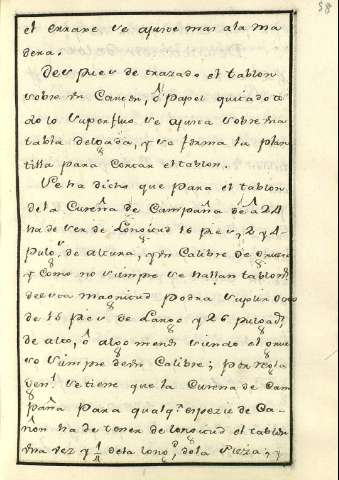 58
el errage se ajuste mas ala ma
dera.
Despues de trazado el tablon
sobre un Carton, ô papel quitado to
do lo superfluo se ajusta sobre una
tabla delgada, y se forma la plan
tilla para cortar el tablon.
Se ha dicho que para el tablon
dela Cureña de Campaña de â 24
ha de ser de Longitud 16 pies, 2 y 4
pulgs. de altura, y un Calibre de grueso
y como no siempre se hallan tablons.
de esta magnitud podra suplir otro
de 15 pies de Largo y 26 pulgads.
de alto, ô algo menos siendo el grue
so siempre de un Calibre; por regla
genl. se tiene que la Cureña de Cam
paña para qualqa. espezie de Ca-
ñon ha de tener de longitud el tablon
una vez y 1/2 dela longd. dela Pieza, y